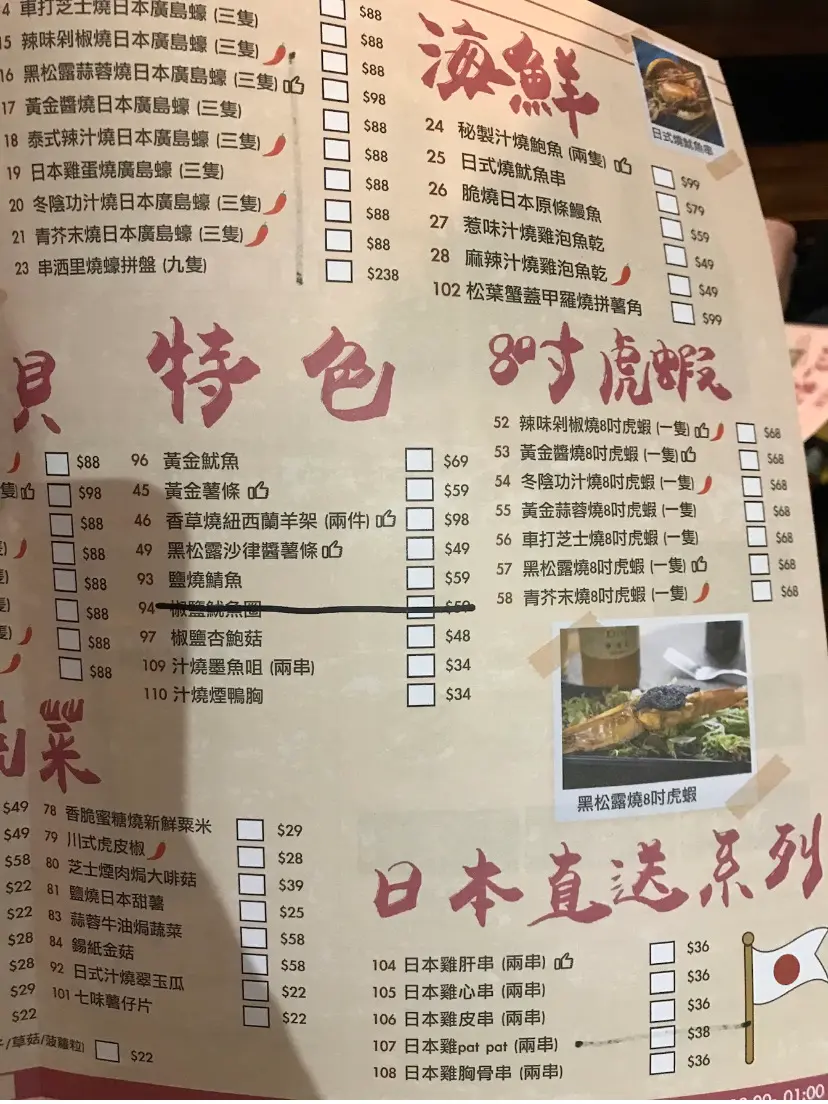 4 車打芝士燒日本廣島蠔 (三隻) $88
15 辣味剁椒燒日本廣島蠔 (三隻) $88
16 黑松露蒜蓉燒日本廣島蠔 (三隻) $88
17 黃金醬燒日本廣島蠔 (三隻) $98
18 泰式辣汁燒日本廣島蠔 (三隻) $88
19 日本雞蛋燒廣島蠔 (三隻) $88
20 冬陰功汁燒日本廣島蠔 (三隻) $88
21 青芥末燒日本廣島蠔 (三隻) $88
23 串洒里燒蠔拼盤 (九隻) $88
$238
海鮮
日式燒魷魚串
24 秘製汁燒鮑魚 (兩隻) $99
25 日式燒魷魚串 $79
26 脆燒日本原條鰻魚 $59
27 惹味汁燒雞泡魚乾 $49
28 麻辣汁燒雞泡魚乾 $49
102 松葉蟹蓋甲羅燒拼薯角 $99
貝
$88
隻 $98
$88
$88
$88
$88
$88
$88
特色
96 黃金魷魚 $69
45 黃金薯條 $59
46 香草燒紐西蘭羊架 (兩件) $98
49 黑松露沙律醬薯條 $49
93 鹽燒鯖魚 $59
94 椒鹽魷魚圈 $59
97 椒鹽杏鮑菇 $48
109 汁燒墨魚咀 (兩串) $34
110 汁燒煙鴨胸 $34
8吋虎蝦
52 辣味剁椒燒8吋虎蝦 (一隻) $68
53 黃金醬燒8吋虎蝦 (一隻) $68
54 冬陰功汁燒8吋虎蝦 (一隻) $68
55 黃金蒜蓉燒8吋虎蝦 (一隻) $68
56 車打芝士燒8吋虎蝦 (一隻) $68
57 黑松露燒8吋虎蝦 (一隻) $68
58 青芥末燒8吋虎蝦 (一隻) $68
黑松露燒8吋虎蝦
菜
$49
$49
$58
$22
$22
$28
$28
$29
$22
78 香脆蜜糖燒新鮮粟米 $29
79 川式虎皮椒 $28
80 芝士煙肉焗大啡菇 $39
81 鹽燒日本甜薯 $25
83 蒜蓉牛油焗蔬菜 $58
84 錫紙金菇 $58
92 日式汁燒翠玉瓜 $22
101 七味薯仔片 $22
/草菇/菠蘿粒) $22
日本直送系列
104 日本雞肝串 (兩串) $36
105 日本雞心串 (兩串) $36
106 日本雞皮串 (兩串) $36
107 日本雞pat pat (兩串) $38
108 日本雞胸骨串 (兩串) $36
01:00